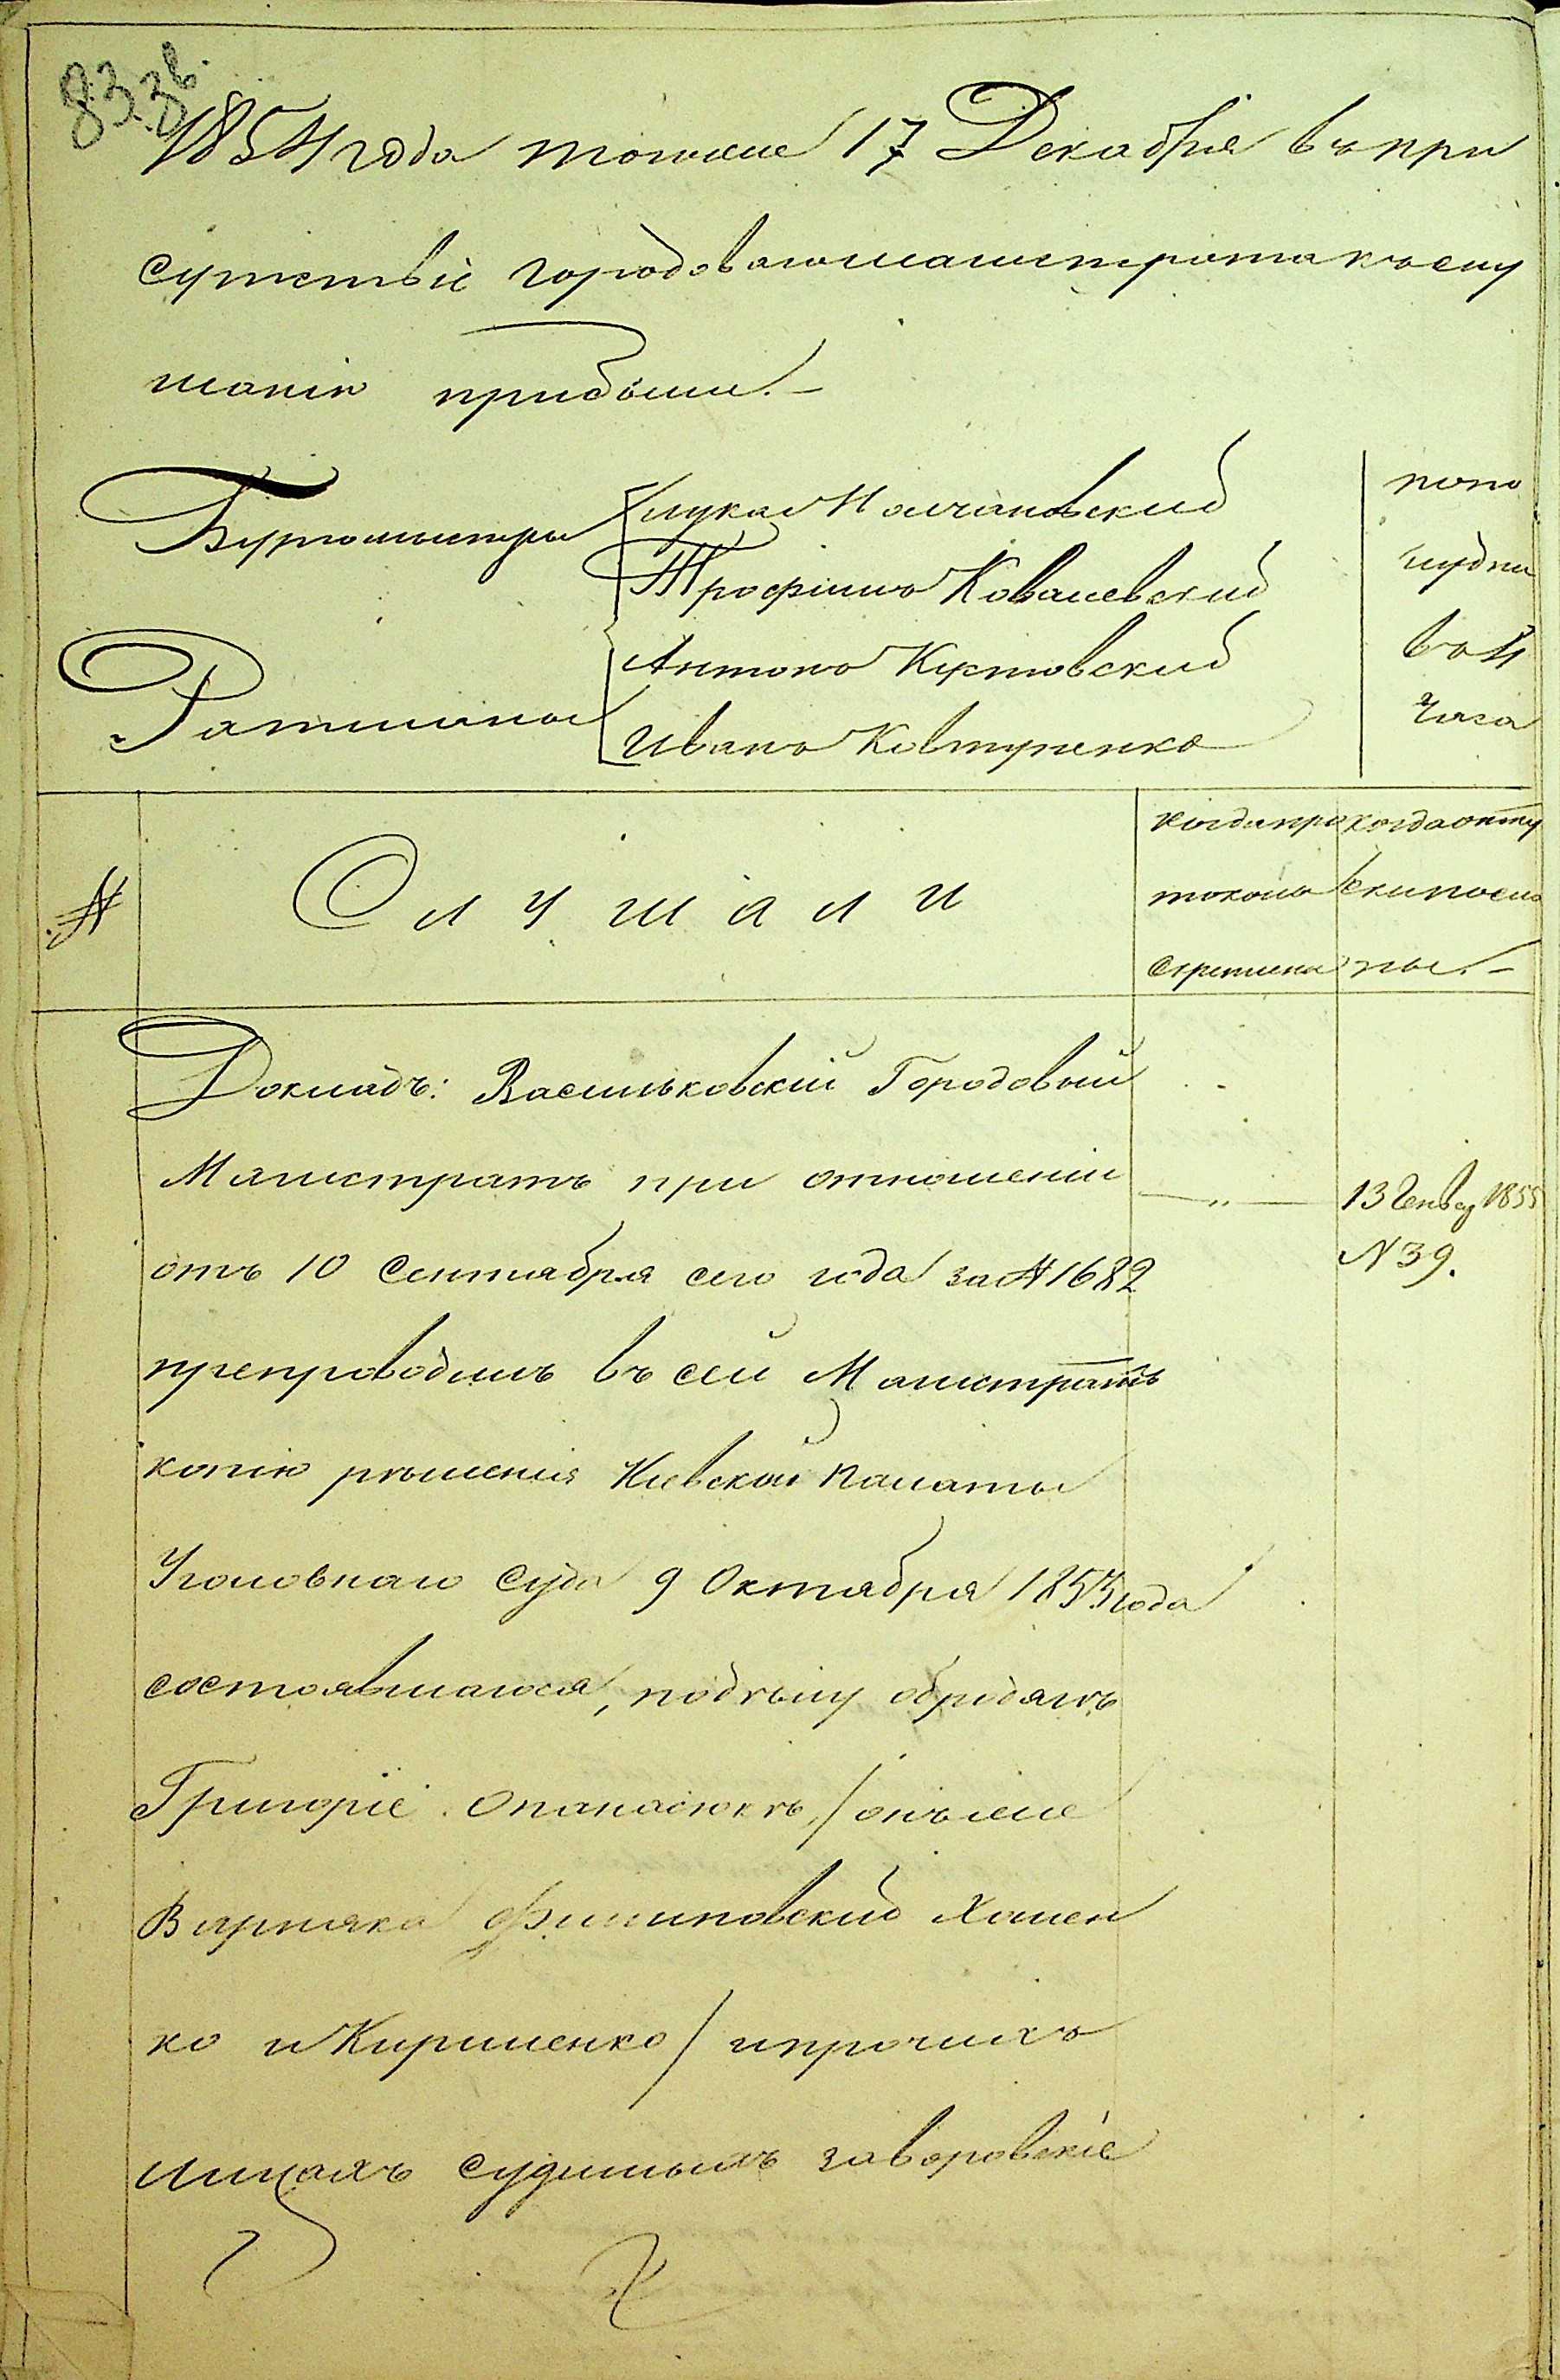 83 зв.
1854 года тогоже 17 Декабря въ при
сутствіе городоваго магистрата къ слу
шанію прибыли. –
Бургомистры Лука Молчановский
Трофимъ Ковалевский
Ратманы Антонъ
Иванъ Ковтуненко
попо
лудни
въ 4
часа
№
Слушали
когда про
токолъ
скрепленъ
когда отпу
ски посла
ны. –
Докладъ: Васильковскій Городовый
Магистратъ при отношеніи
отъ 10 Сентября сего года за № 1682
препроводилъ въ сей Магистратъ
копію рѣшенія Кіевской Палаты
Уголовнаго Суда 9 Октября 1853 года
состоявшагося, по дѣлу о бродягѣ
Григоріе Опанасюкѣ, / онъ же
Варняка Филиповский Хомен
ко и Кириленко / и прочихъ
лицахъ судимыхъ за воровскіе
— „ —
13 Генвар 1855
N 39.